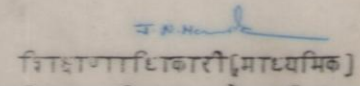 शिक्षणाधिकारी[माध्यमिक]